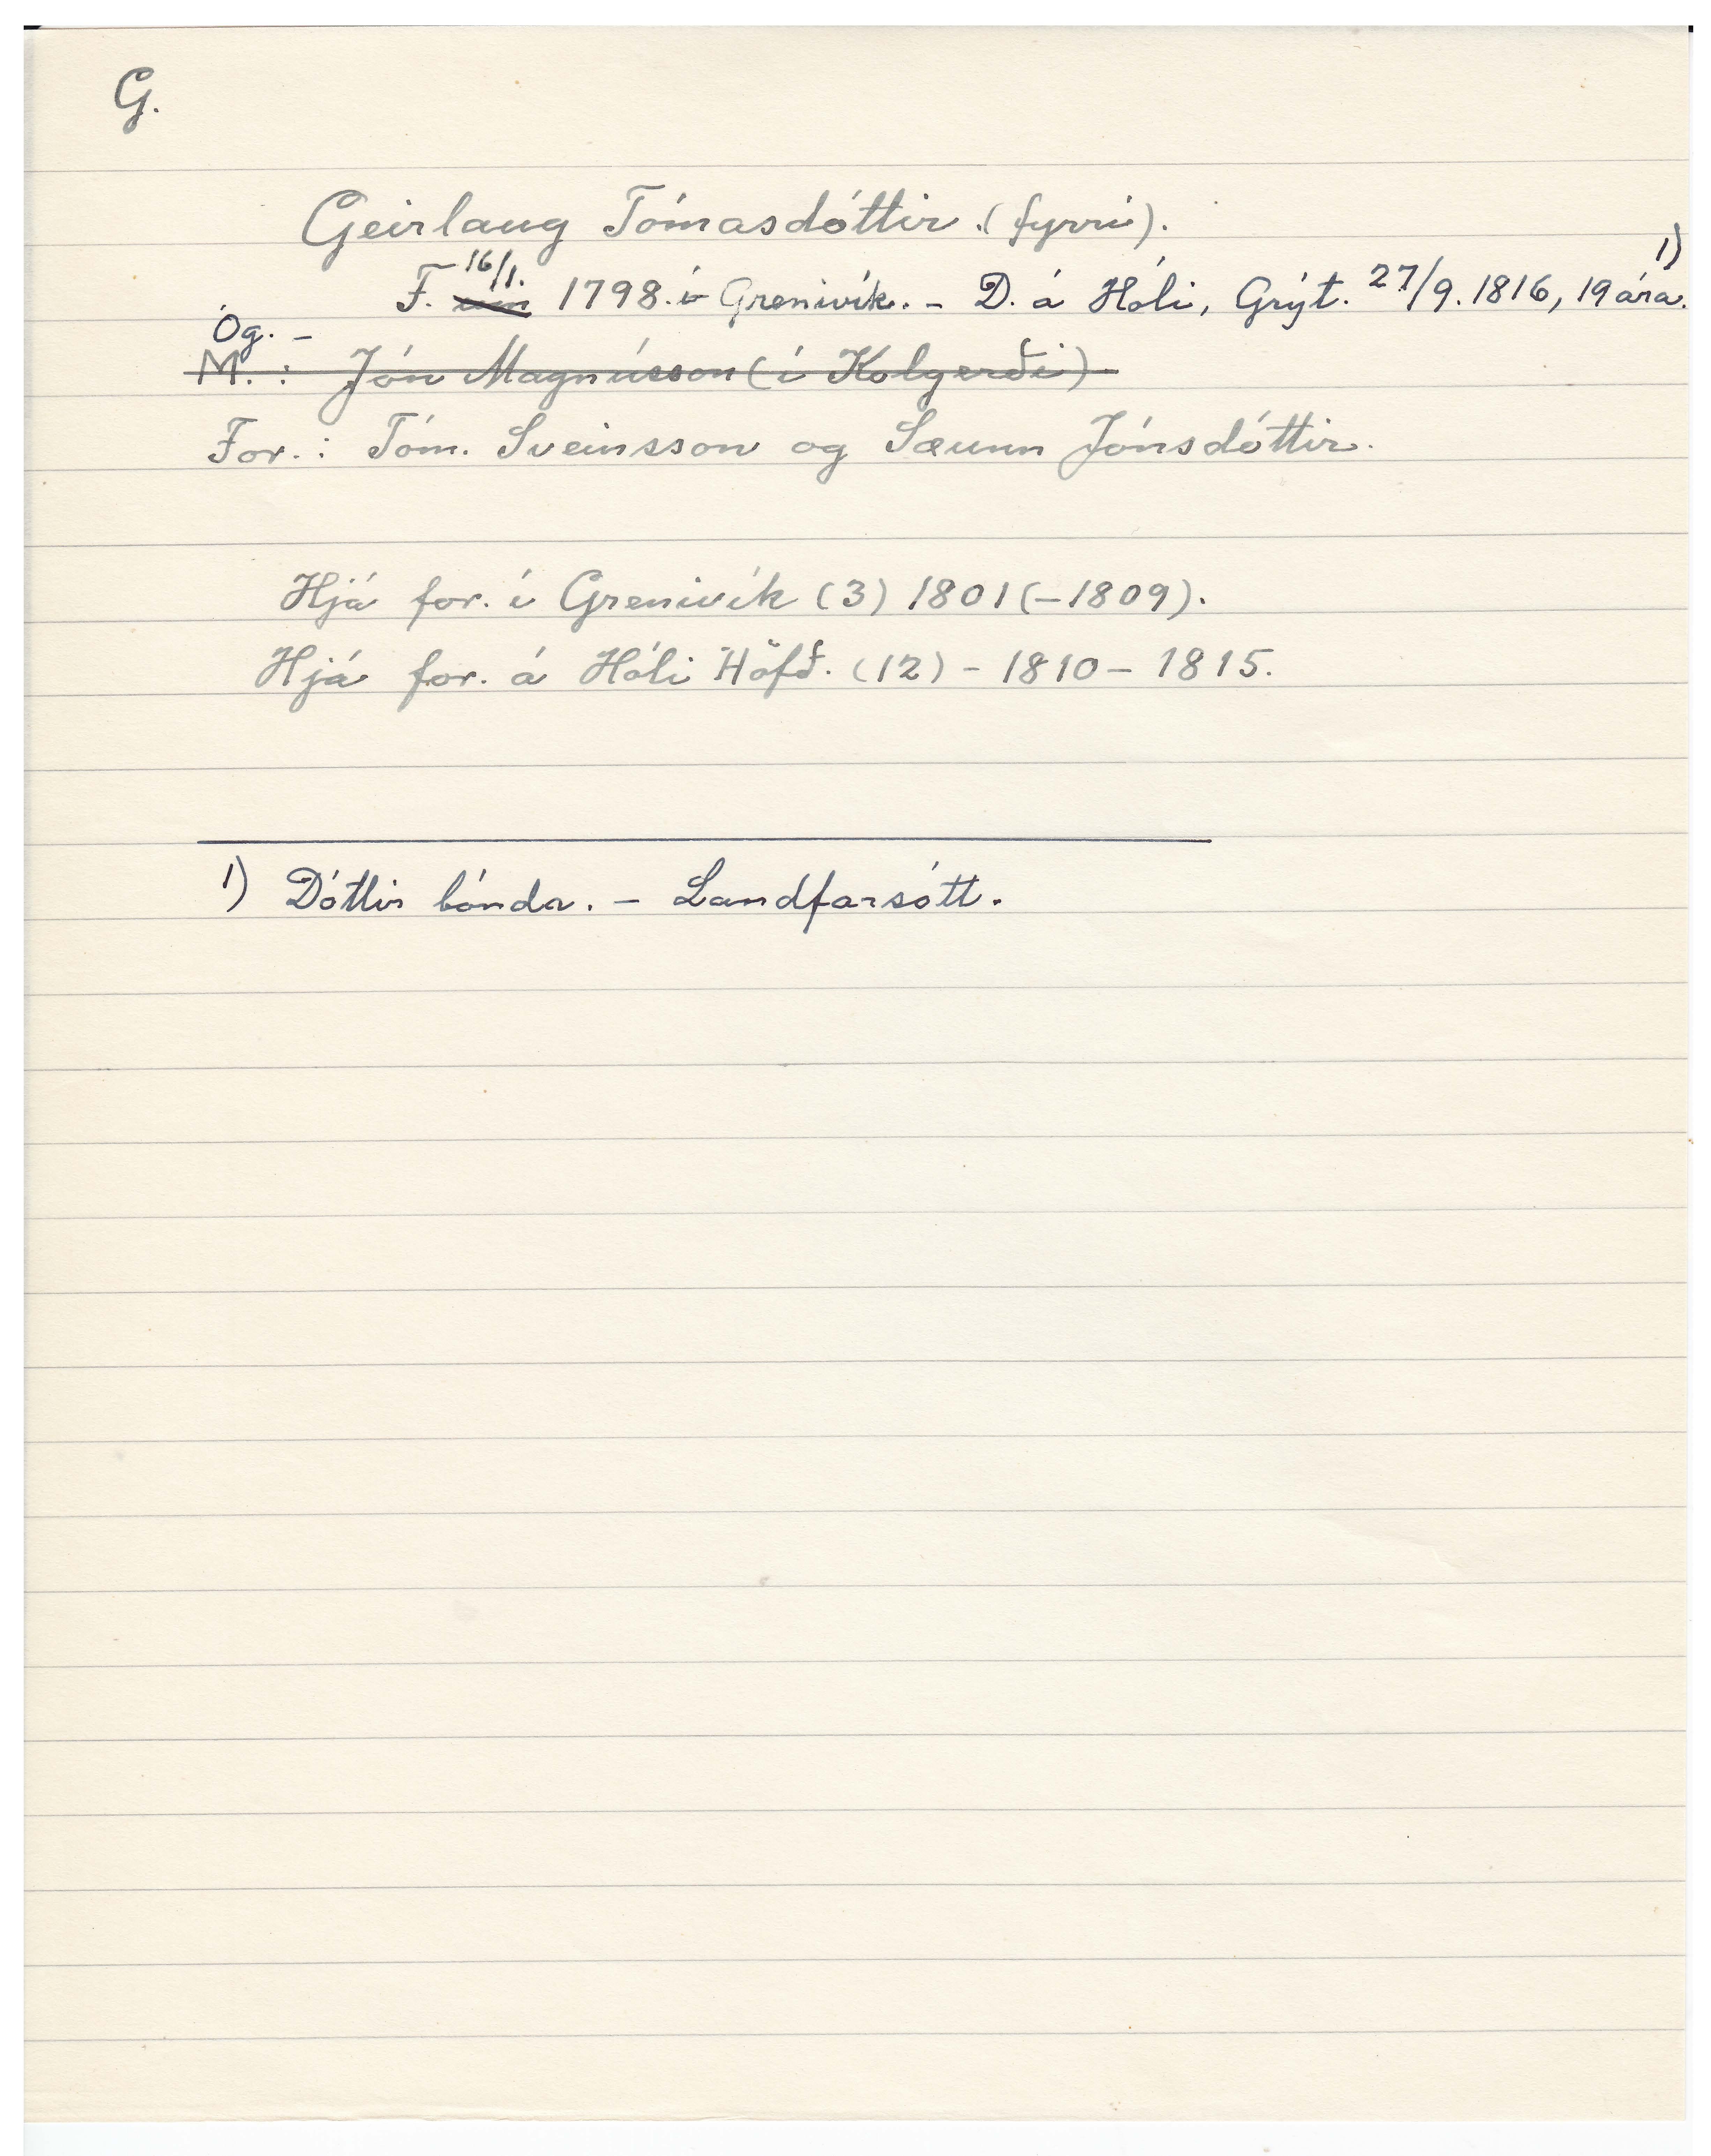 G.
Geirlaug Tómasdóttir. (fyrri).
F. 16/1. 1798. í Grenivík. - D. á Hóli, Grýt. 27/9. 1816, 19 ára. 1)
Óg. -
M. : Jón Magnússon (í Kolgerði)
For. : Tóm. Sveinsson og Sæunn Jónsdóttir.
Hjá for. í Grenivík (3) 1801 (-1809).
Hjá for. á Hóli Höfð. (12) - 1810 - 1815.
1) Dóttir bónda. - Landfarsótt.